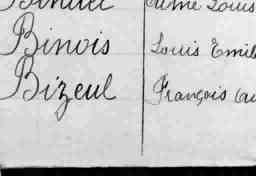 Aimé Louis
Binois Louis Emil
Bizeul François